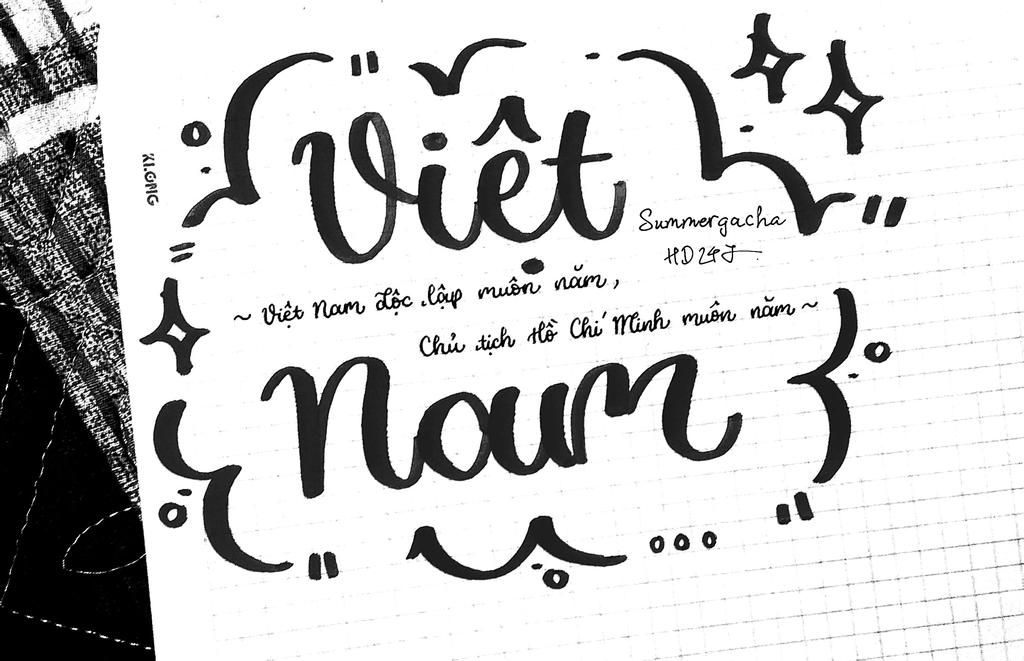 KI.ONG
Việt
Summergacha
HD24J
~ Việt Nam độc lập muôn năm,
Chủ tịch Hồ Chí Minh muôn năm ~
Nam